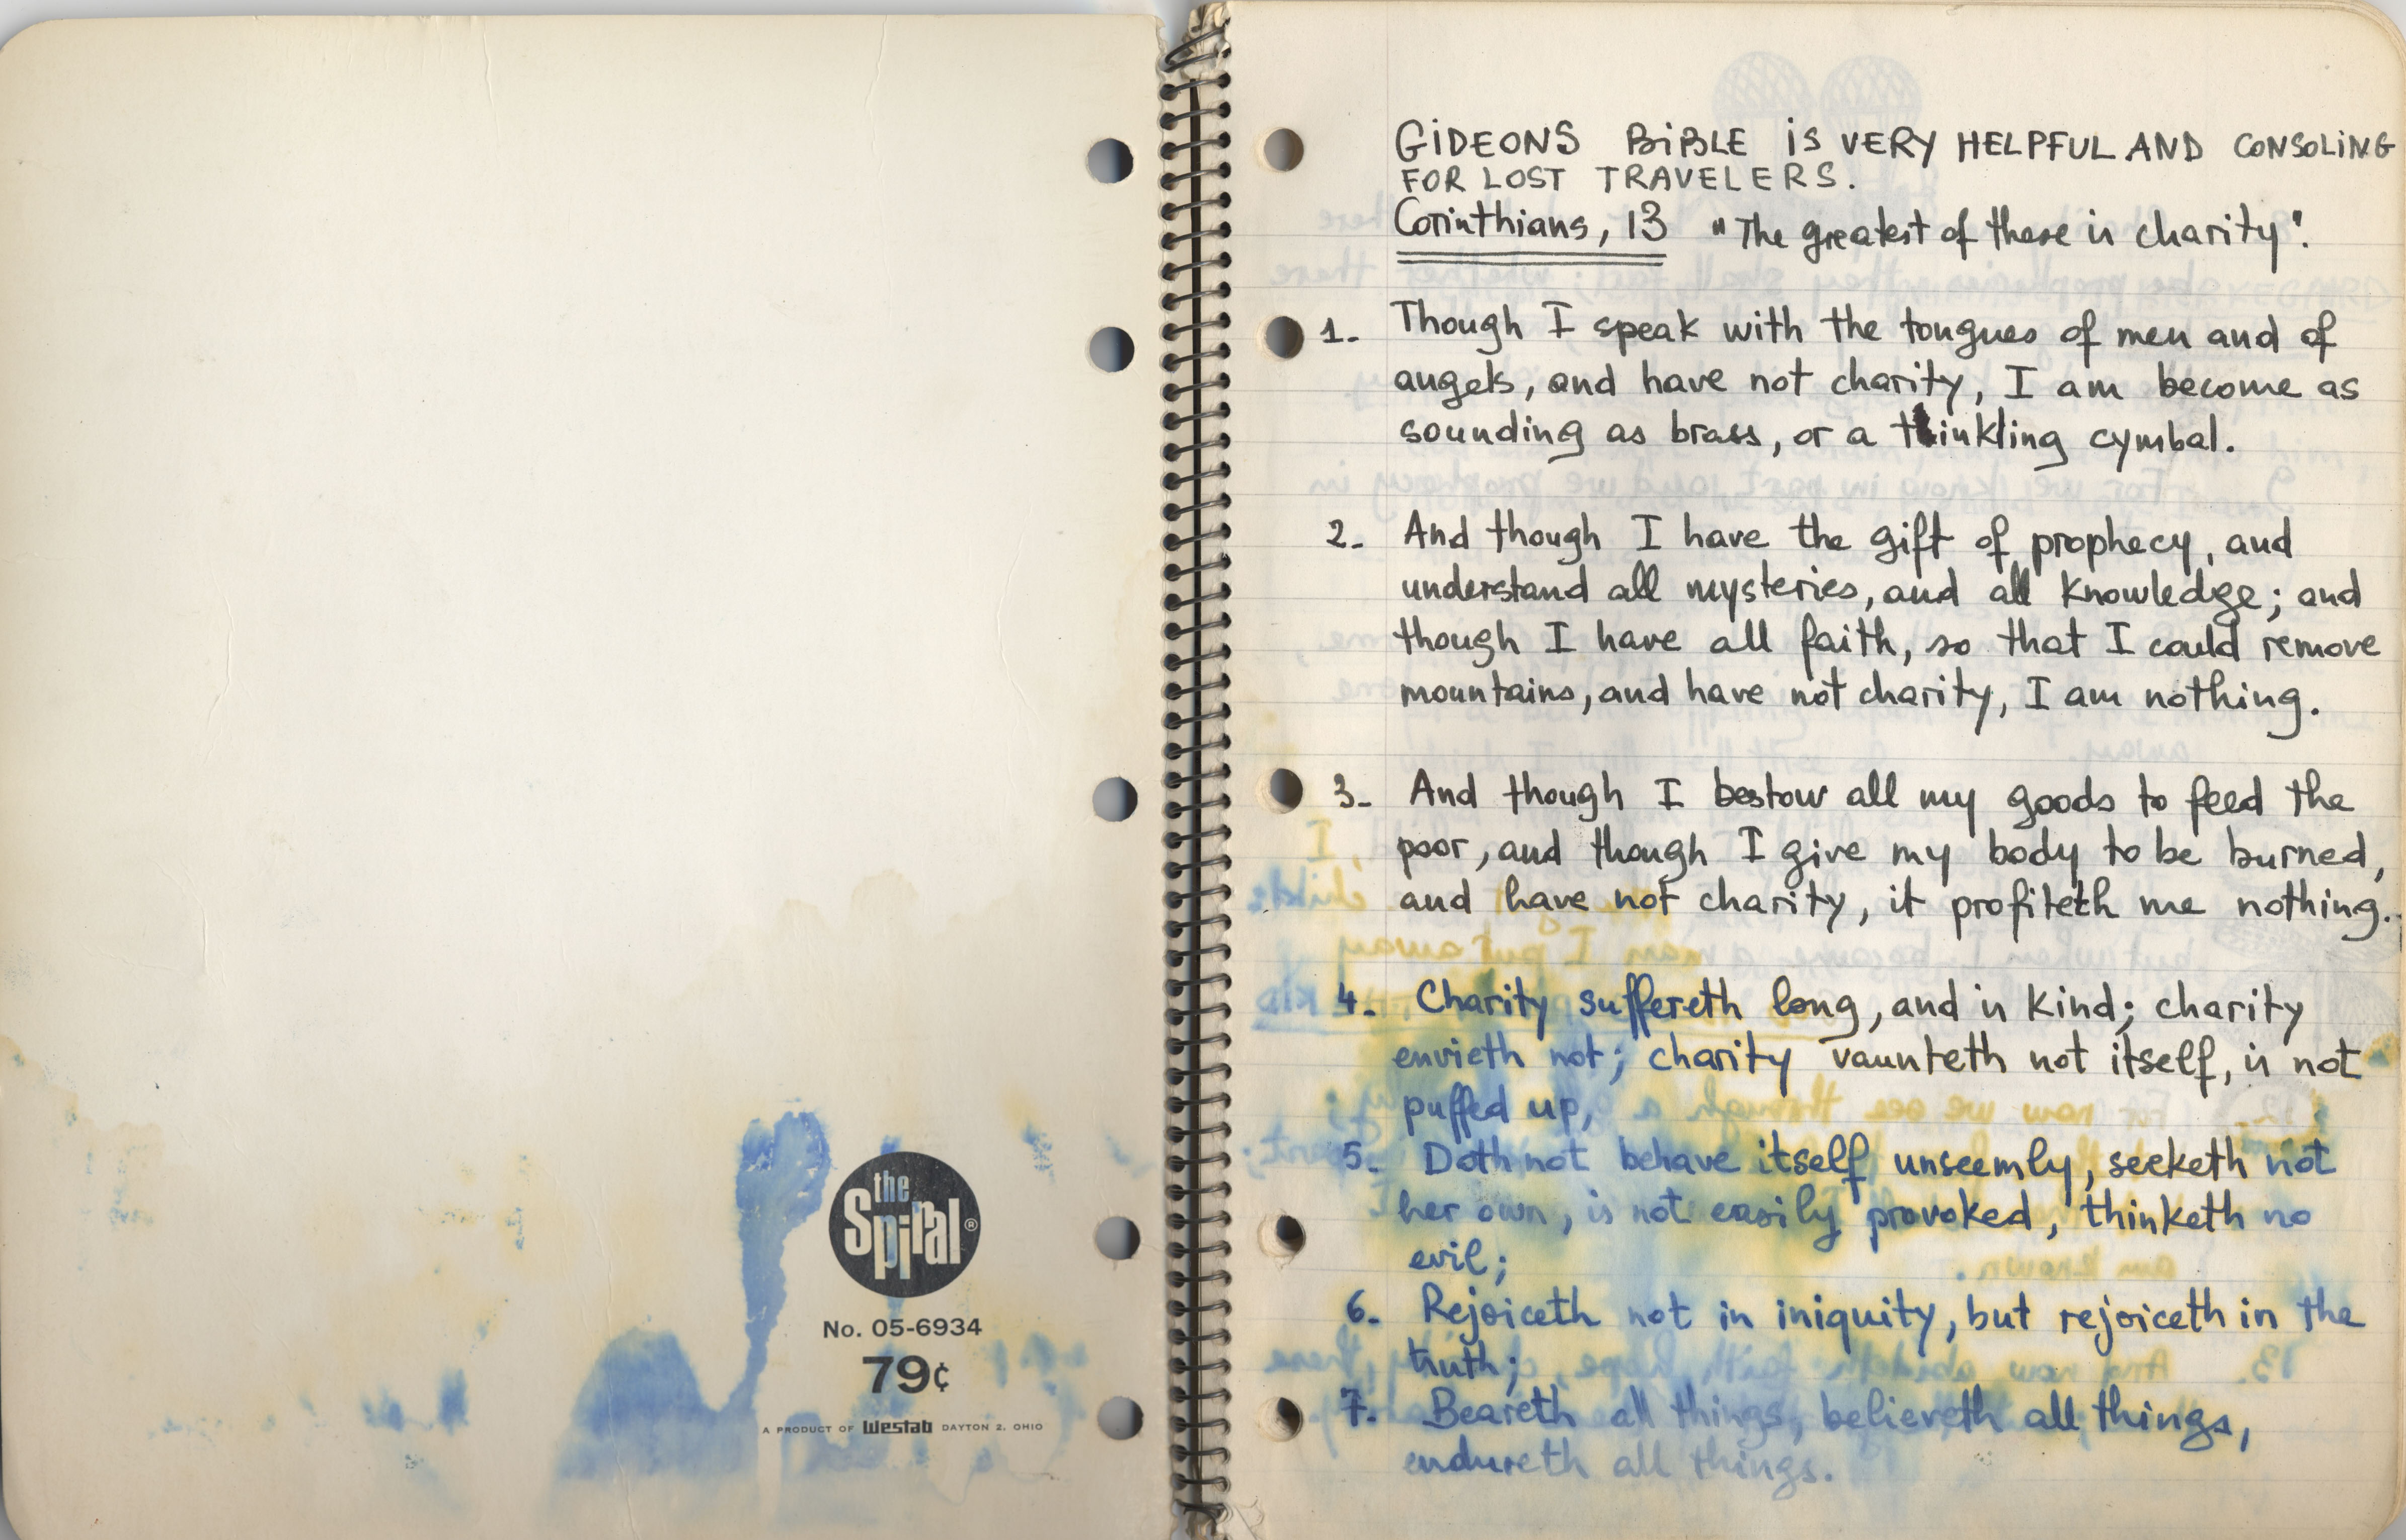 the
Spiral®
No. 05-6934
79¢
A PRODUCT OF Westab DAYTON 2, OHIO
GIDEONS BIBLE IS VERY HELPFUL AND CONSOLING
FOR LOST TRAVELERS.
Corinthians, 13 "The greatest of these is charity".
1. Though I speak with the tongues of men and of
angels, and have not charity, I am become as
sounding as brass, or a tinkling cymbal.
2. And though I have the gift of prophecy, and
understand all mysteries, and all knowledge; and
though I have all faith, so that I could remove
mountains, and have not charity, I am nothing.
3. And though I bestow all my goods to feed the
poor, and though I give my body to be burned,
and have not charity, it profiteth me nothing.
4. Charity suffereth long, and is kind; charity
envieth not; charity vaunteth not itself, is not
puffed up,
5. Doth not behave itself unseemly, seeketh not
her own, is not easily provoked, thinketh no
evil;
6. Rejoiceth not in iniquity, but rejoiceth in the
truth;
7. Beareth all things, believeth all things,
endureth all things.